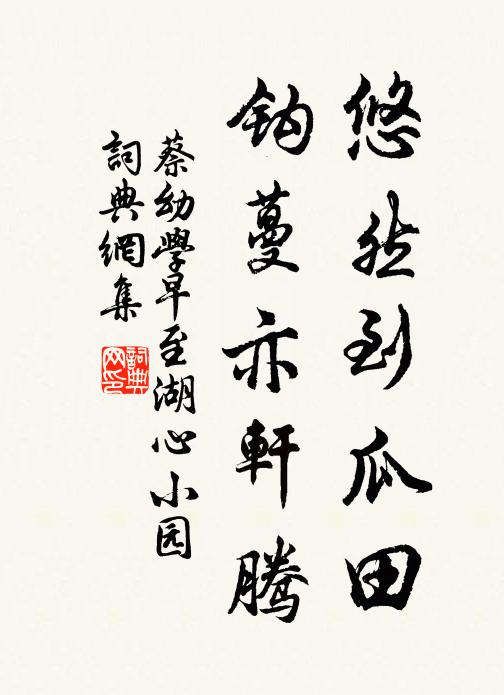 悠然到瓜田
鈎蔓亦軒騰
蔡幼學早至湖心小园
詞典網集
詞典网印